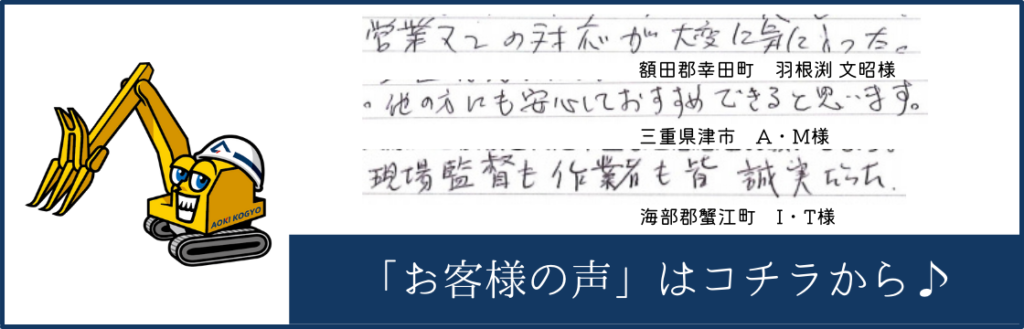 営業マンの対応が大変に気に入った。
額田郡幸田町 羽根渕 文昭様
。他の方にも安心しておすすめできると思います。
三重県津市 A・M様
現場監督も作業者も皆 誠実だった.
海部郡蟹江町 I・T様
AOKI KOGYO
「お客様の声」はコチラから♪